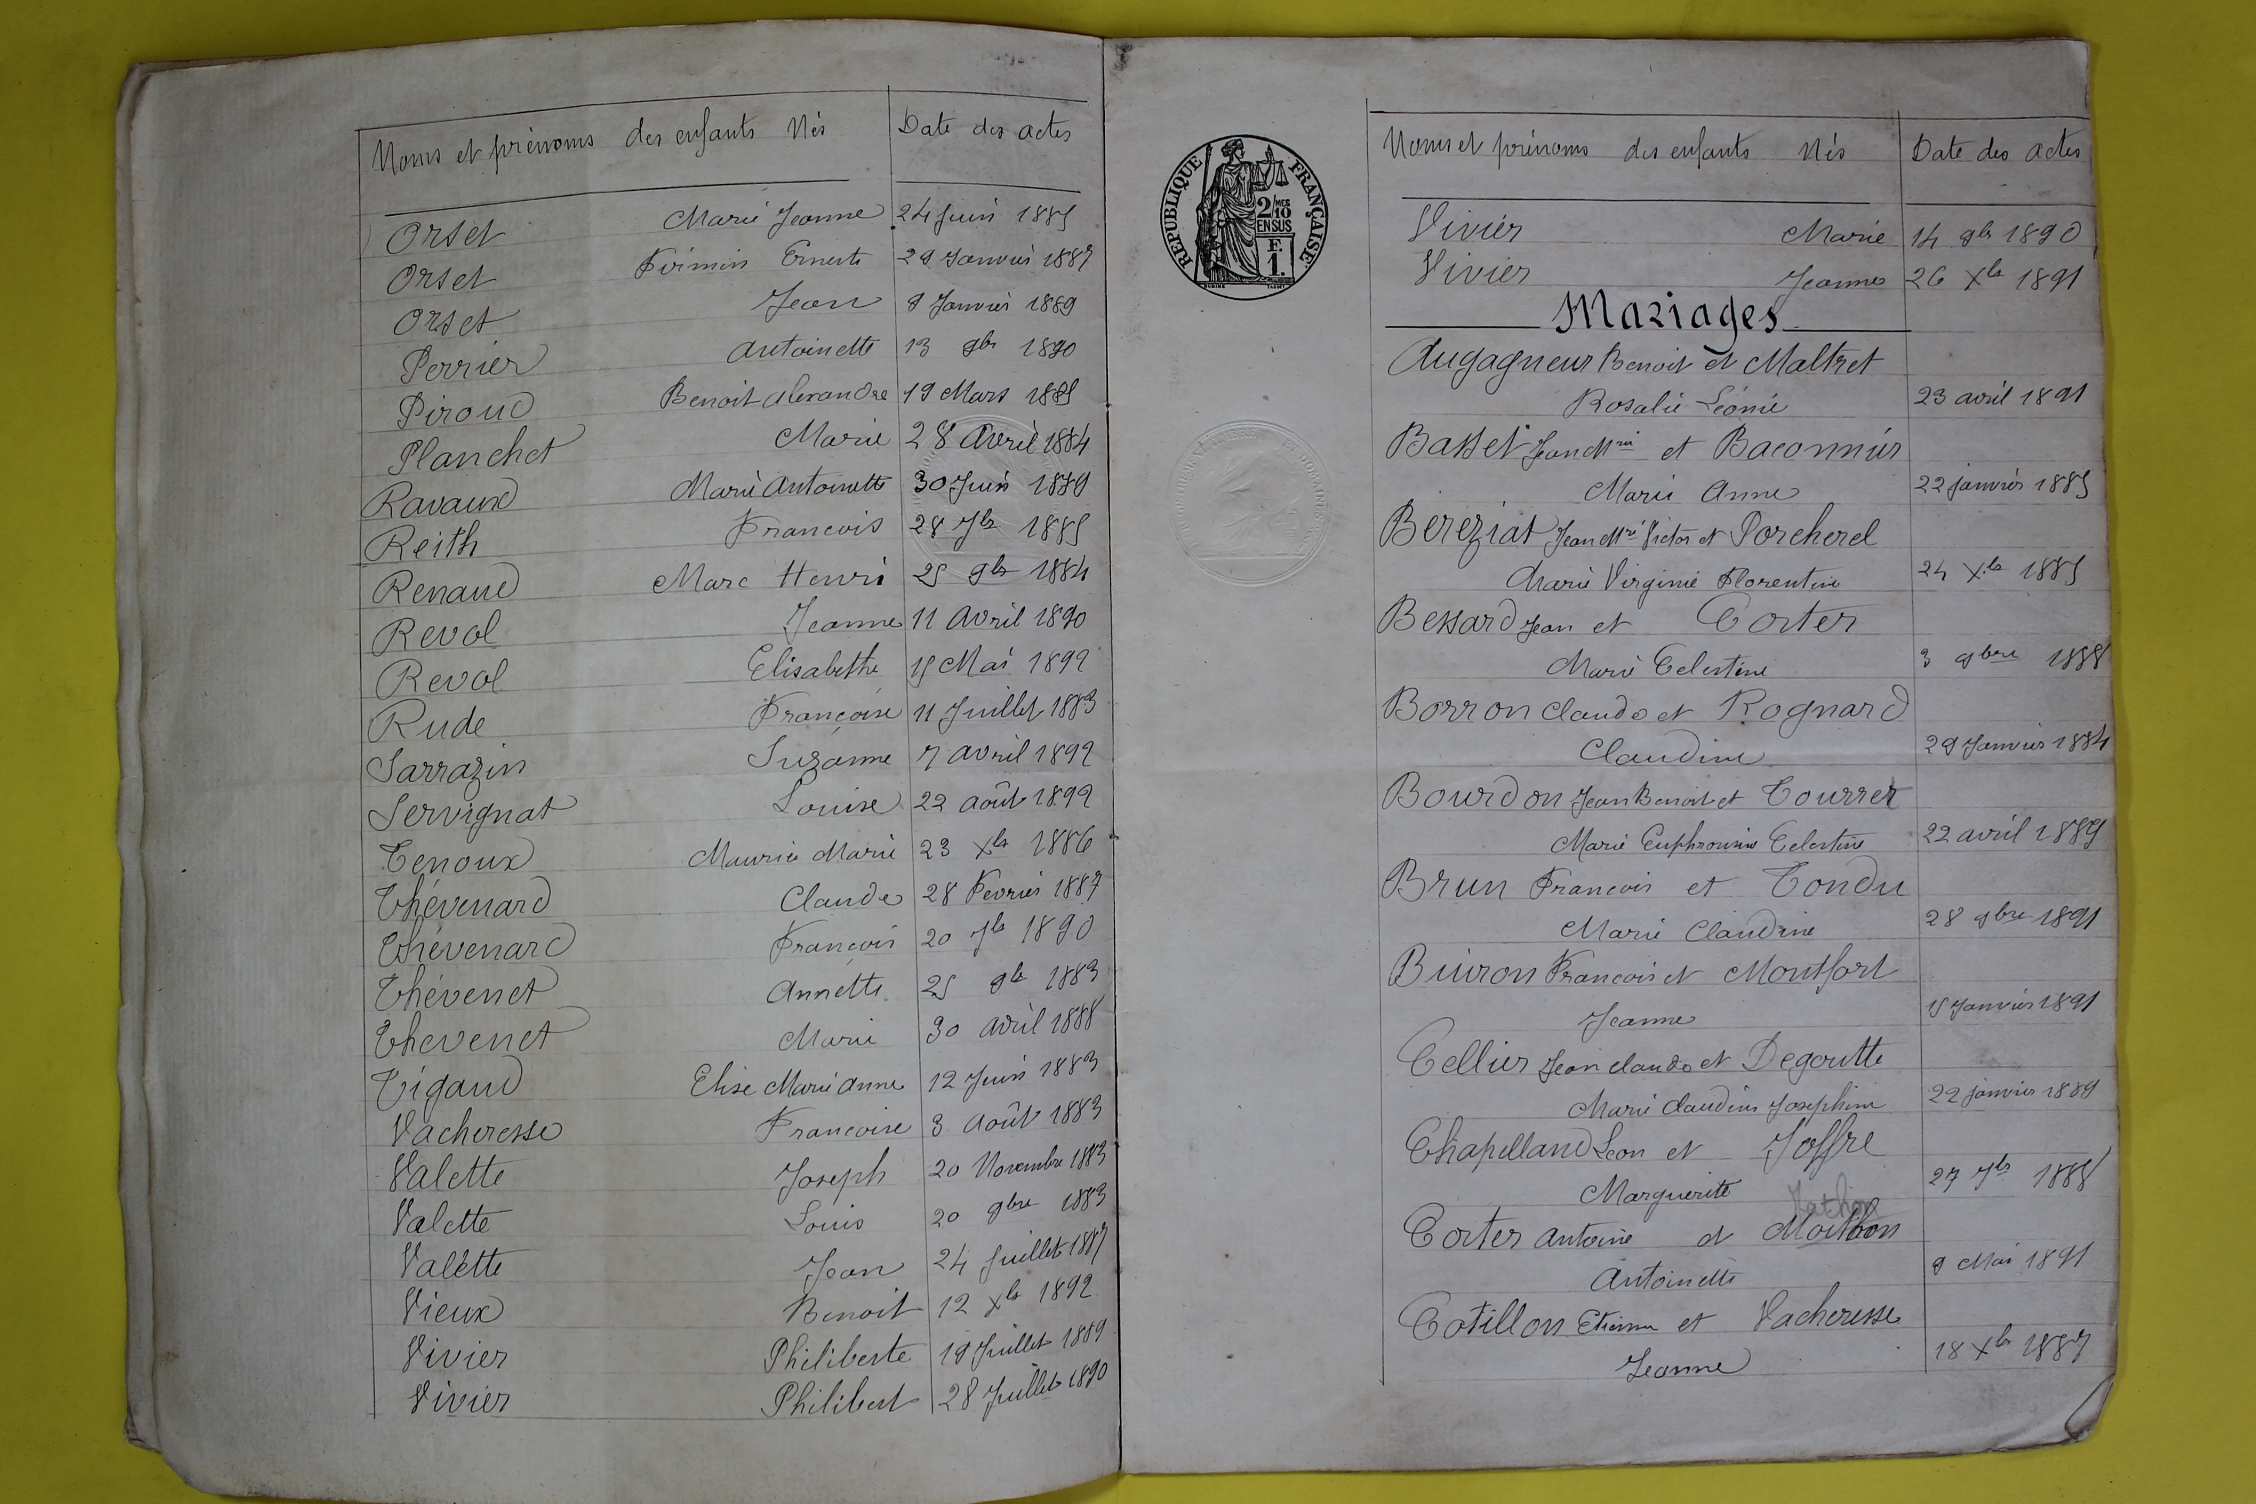 Noms et prénoms des enfants Nés Date des actes
Orset Marie Jeanne 24 Juin 1885
Orset Firmin Ernest 29 Janvier 1887
Orset Jean 9 Janvier 1889
Perrier Antoinette 13 9br 1890
Piroud Benoit Alexandre 19 Mars 1885
Planchet Marie 28 Avril 1884
Ravaux Marie Antoinette 30 Juin 1889
Reith Francois 28 7br 1885
Renaud Marc Henri 25 9br 1884
Revol Jeanne 11 Avril 1890
Revol Elisabeth 15 Mai 1892
Rude Françoise 11 Juillet 1883
Sarrazin Suzanne 7 Avril 1892
Servignat Louise 22 août 1892
Tenoux Maurice Marie 23 Xbr 1886
Thévenard Claude 28 Fevrier 1887
Thévenard François 20 7br 1890
Thévenet Annette 25 9br 1883
Thevenet Marie 30 avril 1888
Tigaud Elise Marie Anne 12 Juin 1883
Vacheresse Francoise 3 Août 1883
Valette Joseph 20 Novembre 1883
Valette Louis 20 9bre 1883
Valette Jean 24 Juillet 1887
Vieux Benoit 12 Xbr 1892
Vivier Philiberte 19 Juillet 1889
Vivier Philibert 28 Juillet 1890
REPUBLIQUE FRANÇAISE
2/10 MES
EN SUS
F.
1.
Noms et prénoms des enfants Nés Date des actes
Vivier Marie 14 9br 1890
Vivier Jeanne 26 Xbr 1891
Mariages
Augagneur Benoit et Maltret
Rosalie Léonie 23 avril 1891
Basset Jean Mrie et Baconnier
Marie Anne 22 janvier 1885
Bereziat Jean Mrie Victor et Porcherel
Marie Virginie Florentine 24 Xbr 1885
Bessard Jean et Corter
Marie Celestine 3 9bre 1888
Borron Claude et Rognard
Claudine 29 Janvier 1884
Bourdon Jean Benoit et Tourret
Marie Euphrosine Celestine 22 avril 1889
Brun Francois et Tondu
Marie Claudine 28 9bre 1891
Buiron Francois et Montfort
Jeanne 15 Janvier 1891
Cellier Jean Claude et Degoutte
Marie Claudine Josephine 22 janvier 1889
Chapelland Leon et Joffre
Marguerite 27 7br 1888
Mathon
Corter Antoine et Moithon
Antoinette 9 Mai 1891
Cotillon Etienne et Vacheresse
Jeanne 18 Xbr 1887